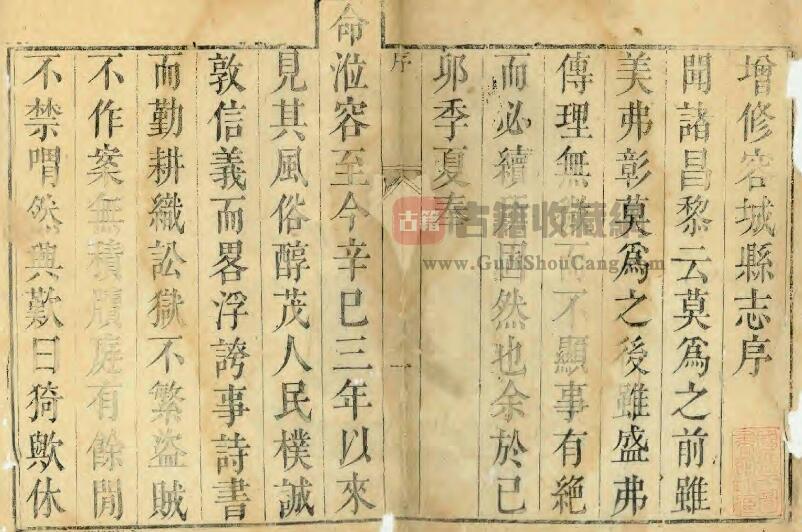 增修容城縣志序
聞諸昌黎云莫為之前雖
美弗彰莫為之後雖盛弗
傳理無微而不顯事有絶
而必續應固然也余於已
卯季夏奉
序
一
命涖容至今辛巳三年以來
見其風俗醇茂人民樸誠
敦信義而畧浮誇事詩書
而勤耕織訟獄不繁盜賊
不作案無積牘庭有餘閒
不禁喟然興歎曰猗歟休
古籍
古籍收藏
www.GujiShouCang.com